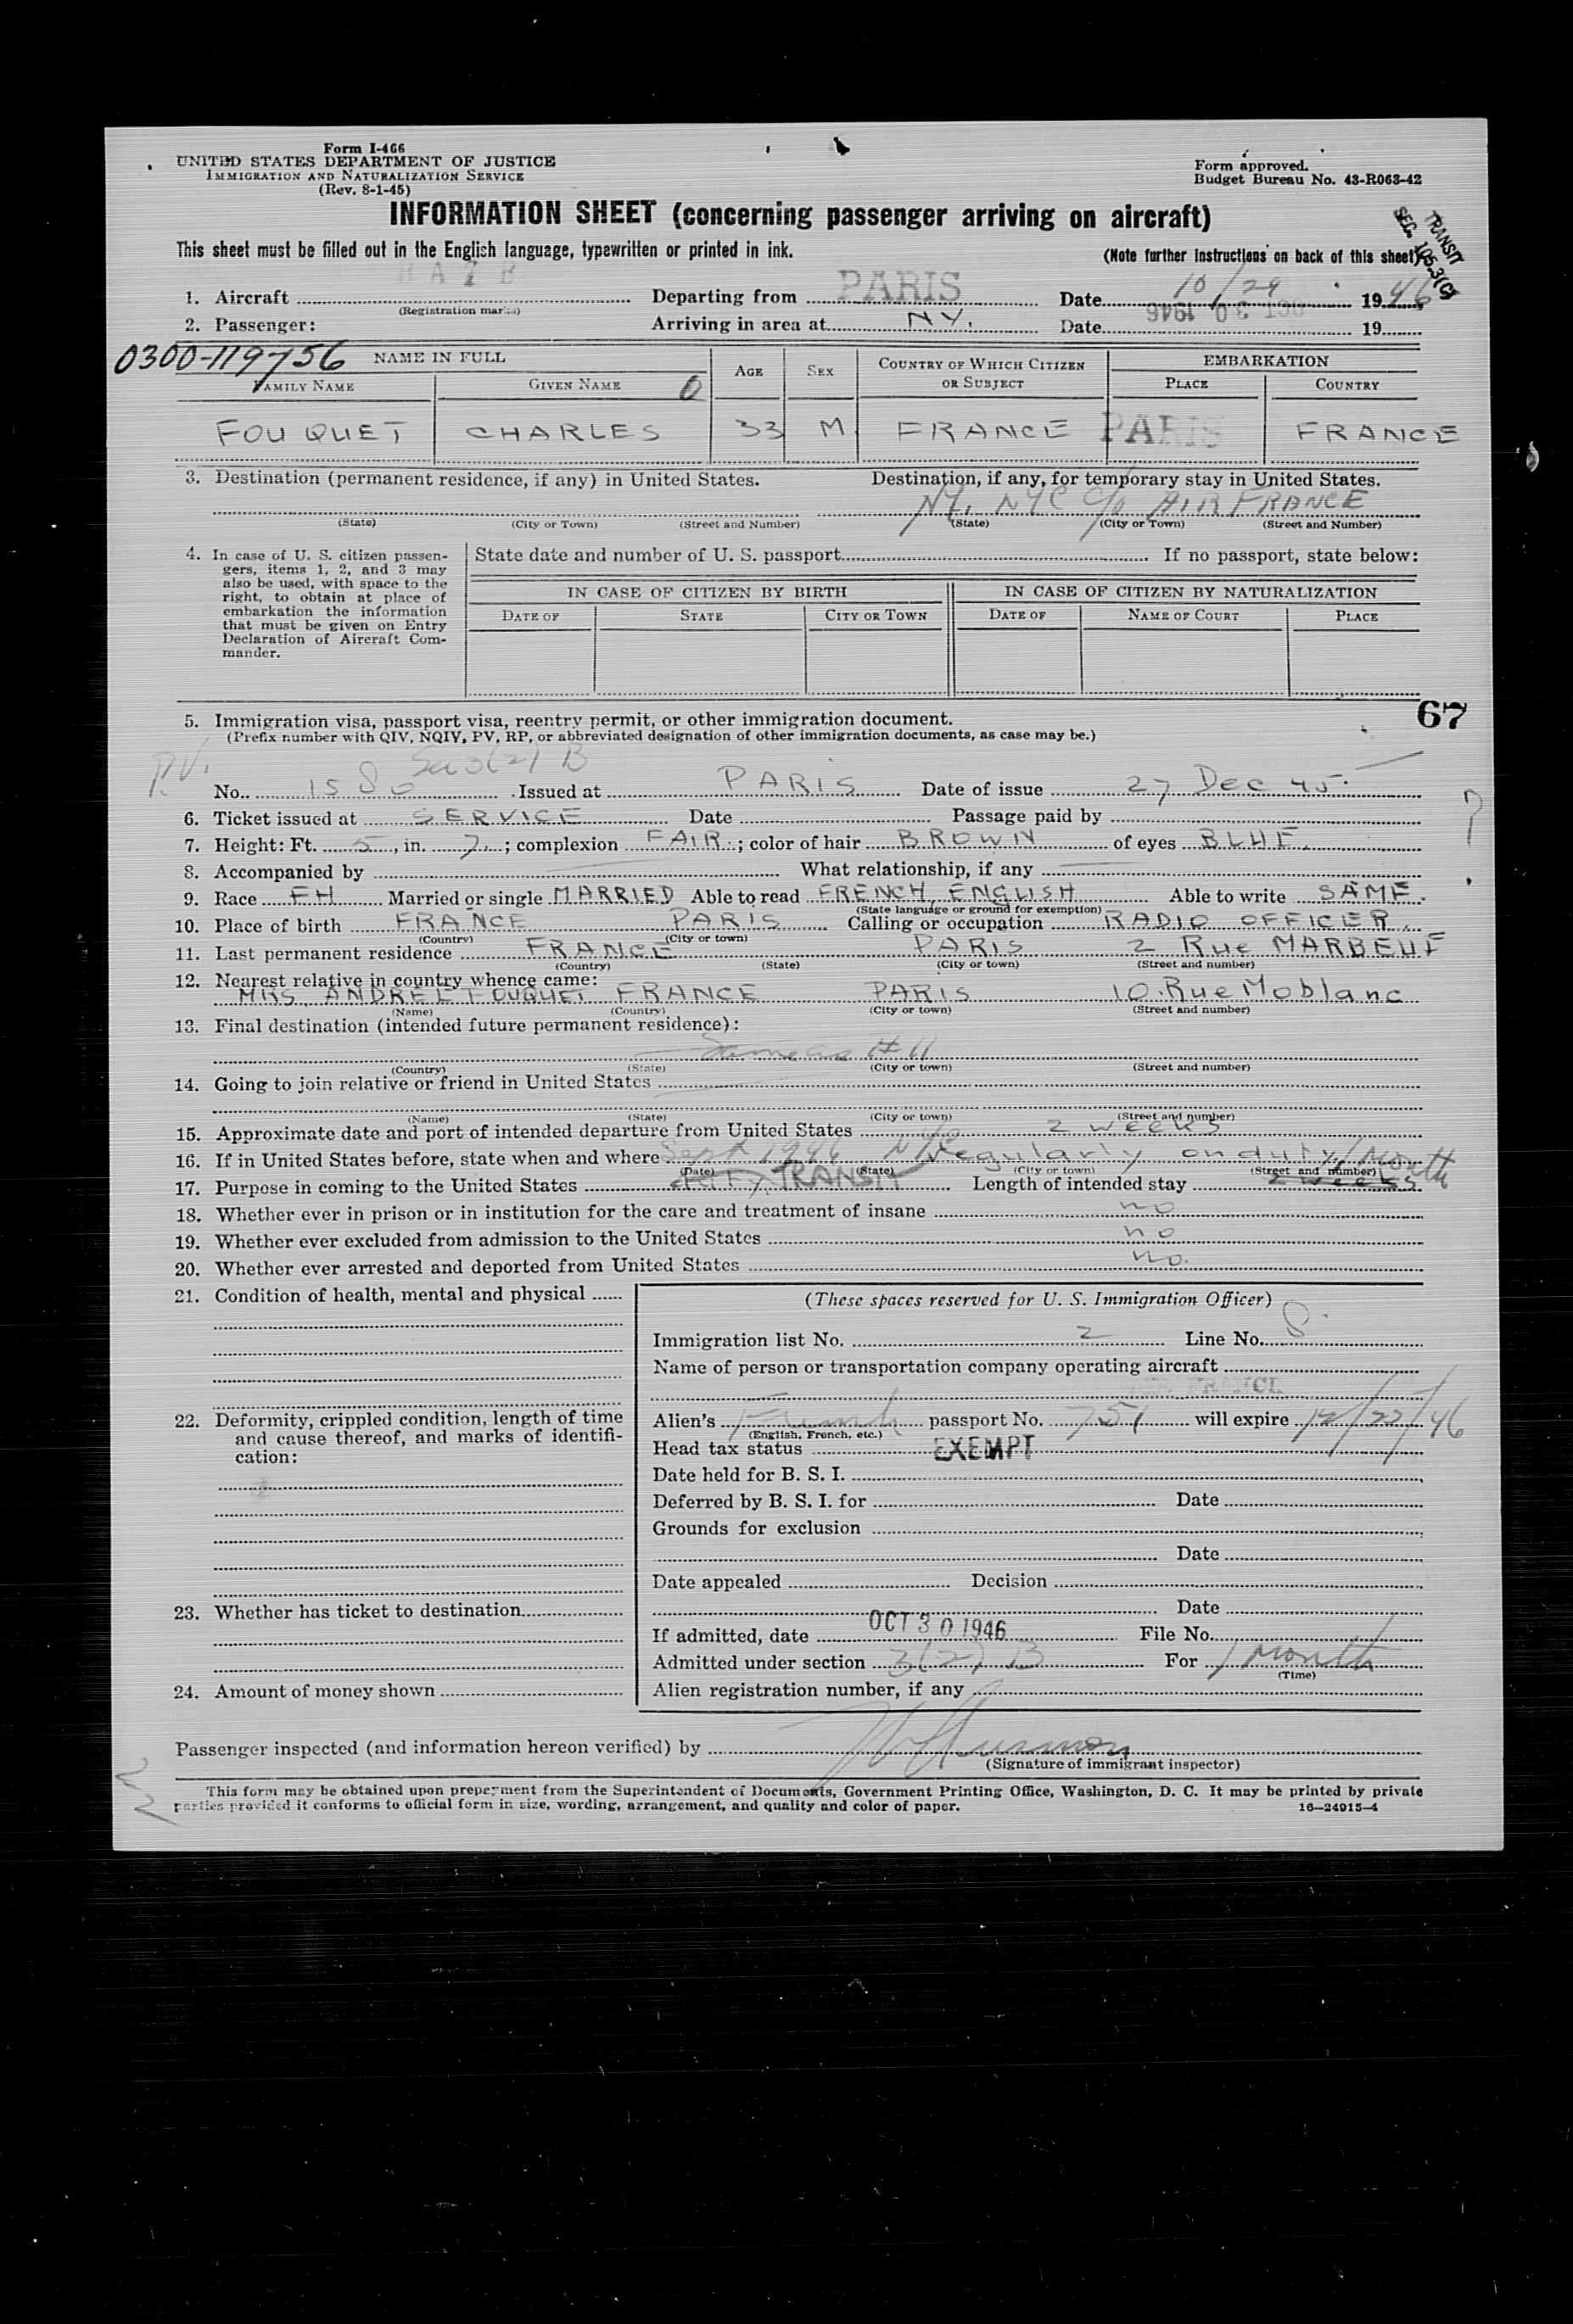 Form I-466
UNITED STATES DEPARTMENT OF JUSTICE
IMMIGRATION AND NATURALIZATION SERVICE
(Rev. 8-1-45)
Form approved.
Budget Bureau No. 43-R063-42
INFORMATION SHEET (concerning passenger arriving on aircraft)
This sheet must be filled out in the English language, typewritten or printed in ink.
(Note further instructions on back of this sheet)
TRANSIT
SEC. 105.3(C)
1. Aircraft Departing from PARIS Date 10/29 1946
(Registration marks)
2. Passenger: Arriving in area at NY. Date OCT 30 1946 19
0300-119756 NAME IN FULL AGE SEX COUNTRY OF WHICH CITIZEN OR SUBJECT EMBARKATION
FAMILY NAME GIVEN NAME PLACE COUNTRY
FOUQUET CHARLES 33 M FRANCE PARIS FRANCE
3. Destination (permanent residence, if any) in United States. Destination, if any, for temporary stay in United States.
NY, NYC c/o AIR FRANCE
(State) (City or Town) (Street and Number) (State) (City or Town) (Street and Number)
4. In case of U. S. citizen passengers, items 1, 2, and 3 may also be used, with space to the right, to obtain at place of embarkation the information that must be given on Entry Declaration of Aircraft Commander.
State date and number of U. S. passport If no passport, state below:
IN CASE OF CITIZEN BY BIRTH IN CASE OF CITIZEN BY NATURALIZATION
DATE OF STATE CITY OR TOWN DATE OF NAME OF COURT PLACE
67
5. Immigration visa, passport visa, reentry permit, or other immigration document.
(Prefix number with QIV, NQIV, PV, RP, or abbreviated designation of other immigration documents, as case may be.)
P.V. Sec 3(2) B
No. 1580 Issued at PARIS Date of issue 27 Dec 45
6. Ticket issued at SERVICE Date Passage paid by
7. Height: Ft. 5, in. 7; complexion FAIR; color of hair BROWN of eyes BLUE.
8. Accompanied by What relationship, if any
9. Race FH Married or single MARRIED Able to read FRENCH, ENGLISH Able to write SAME.
(State language or ground for exemption)
10. Place of birth FRANCE PARIS Calling or occupation RADIO OFFICER.
(Country) (City or town)
11. Last permanent residence FRANCE PARIS 2 Rue MARBEUF
(Country) (State) (City or town) (Street and number)
12. Nearest relative in country whence came:
MRS. ANDREE FOUQUET FRANCE PARIS 10 Rue Moblanc
(Name) (Country) (City or town) (Street and number)
13. Final destination (intended future permanent residence):
Same as # 11
(Country) (State) (City or town) (Street and number)
14. Going to join relative or friend in United States
(Name) (State) (City or town) (Street and number)
15. Approximate date and port of intended departure from United States 2 weeks
16. If in United States before, state when and where Sept 1946 NYC regularly on duty
(Date) (State) (City or town) (Street and number)
17. Purpose in coming to the United States TRANSIT Length of intended stay 2 weeks 1 Month
18. Whether ever in prison or in institution for the care and treatment of insane no
19. Whether ever excluded from admission to the United States no
20. Whether ever arrested and deported from United States no.
21. Condition of health, mental and physical
(These spaces reserved for U. S. Immigration Officer)
Immigration list No. 2 Line No. 8
Name of person or transportation company operating aircraft
AIR FRANCE
22. Deformity, crippled condition, length of time and cause thereof, and marks of identification:
Alien's French passport No. 751 will expire 12/22/46
(English, French, etc.)
Head tax status EXEMPT
Date held for B. S. I.
Deferred by B. S. I. for Date
Grounds for exclusion
Date
Date appealed Decision
23. Whether has ticket to destination
Date
If admitted, date OCT 30 1946 File No.
Admitted under section 3(2) B For 1 Month
(Time)
24. Amount of money shown
Alien registration number, if any
Passenger inspected (and information hereon verified) by
(Signature of immigrant inspector)
This form may be obtained upon prepayment from the Superintendent of Documents, Government Printing Office, Washington, D. C. It may be printed by private
parties provided it conforms to official form in size, wording, arrangement, and quality and color of paper.
16—24915-4